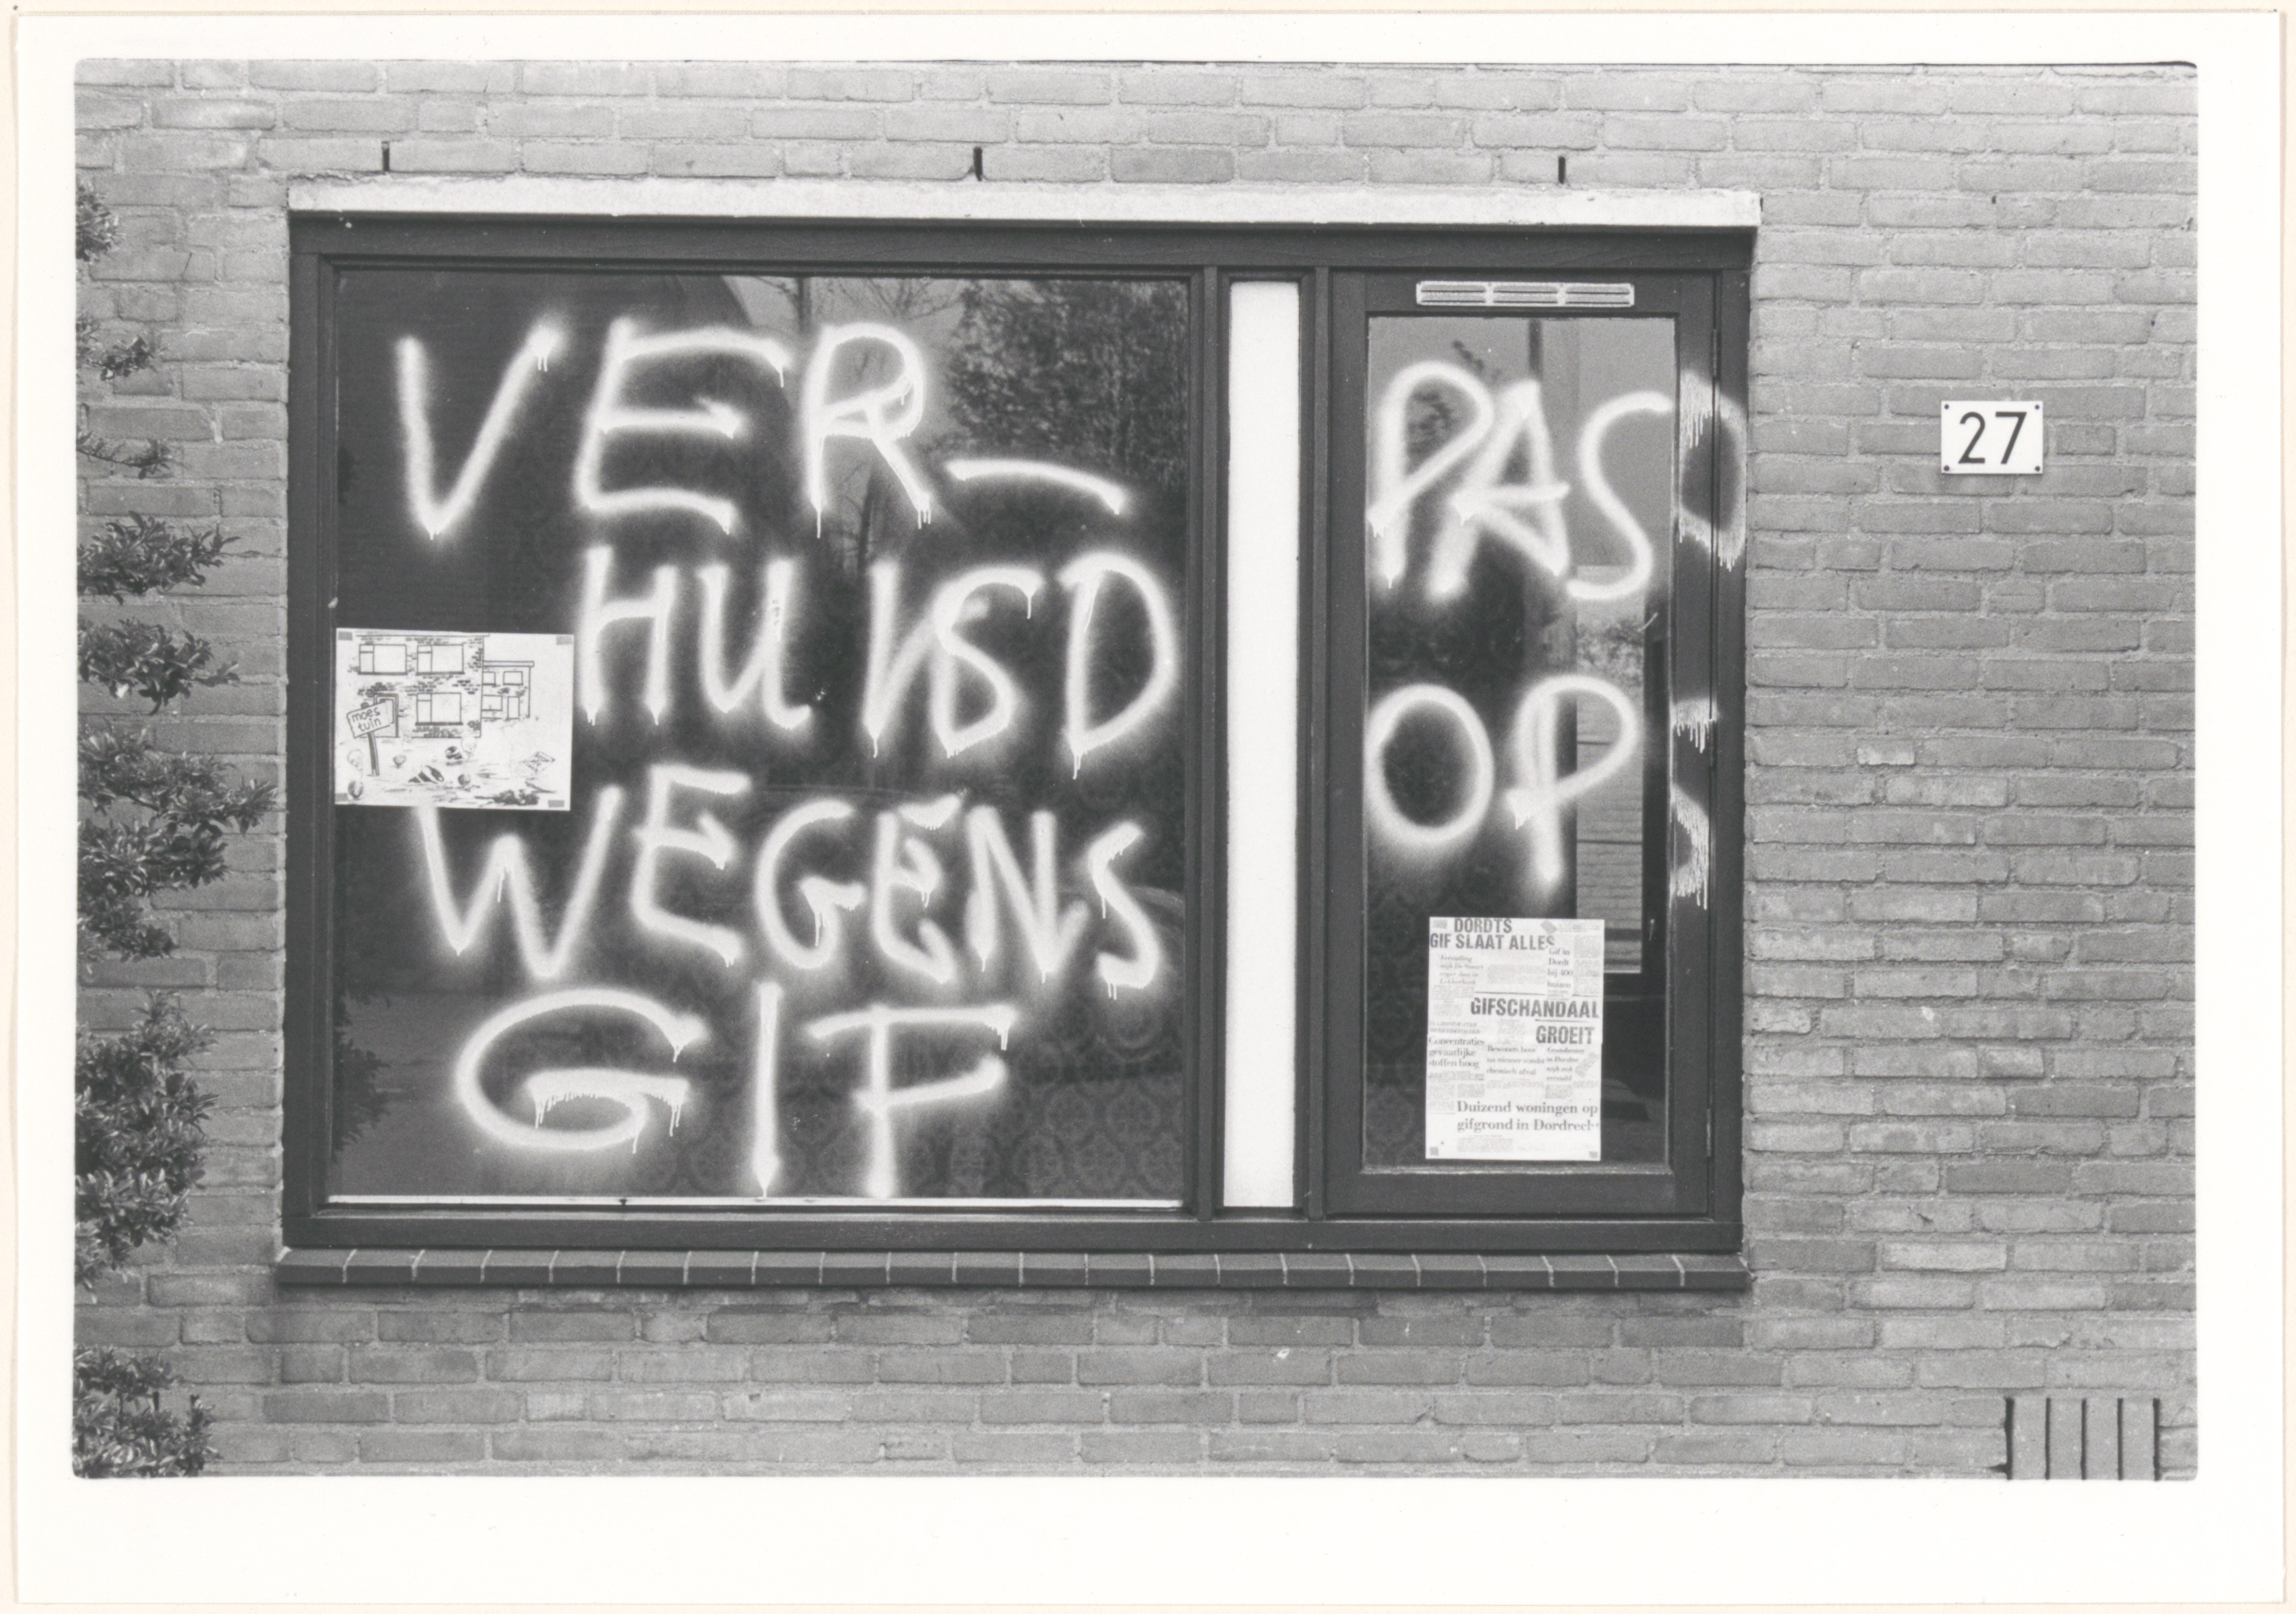 VER-
HUISD
WEGENS
GIF
PAS
OP
27
moes
tuin
DORDTS
GIF SLAAT ALLES
Gif in
Dordt
bij 400
huizen
GIFSCHANDAAL
GROEIT
Concentraties
gevaarlijke
stoffen hoog
chemisch afval
Duizend woningen op
gifgrond in Dordrecht